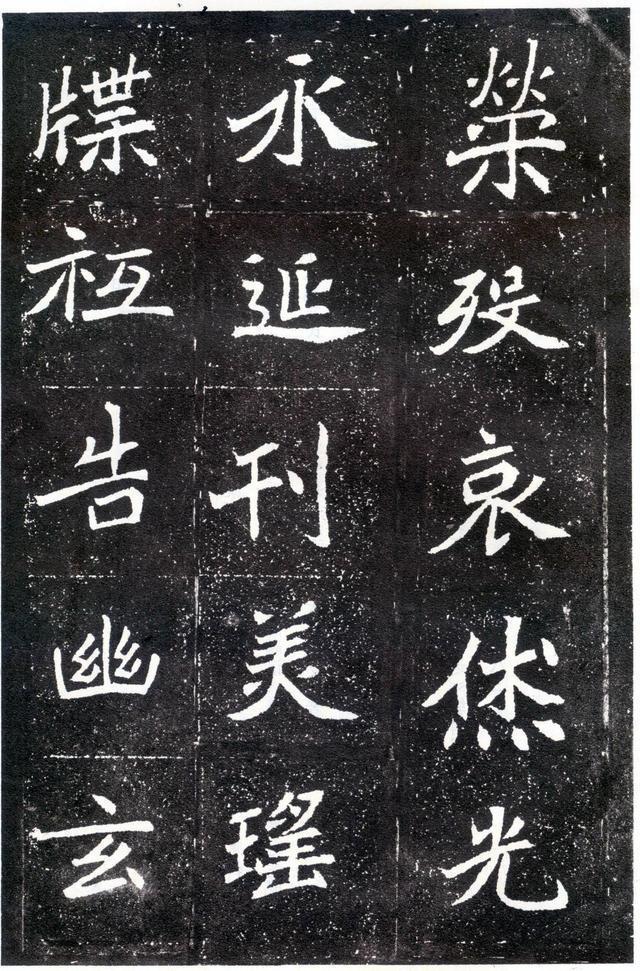 榮歿哀烋光
永延刊美瑤
牒祗告幽玄